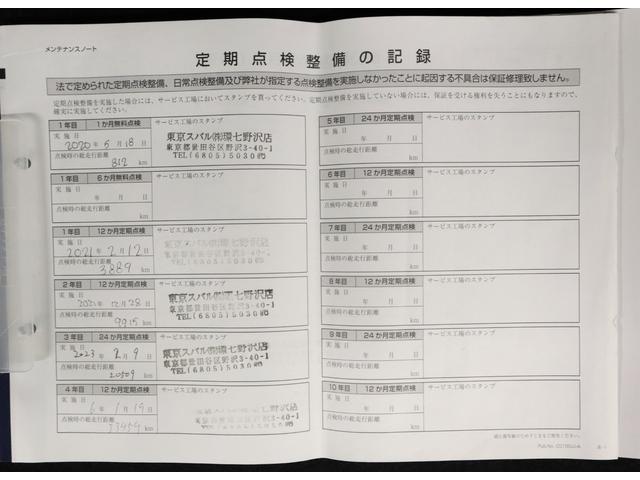 メンテナンスノート
定期点検整備の記録
法で定められた定期点検整備、日常点検整備及び弊社が指定する点検整備を実施しなかったことに起因する不具合は保証修理致しません。
定期点検整備を実施した場合には、サービス工場においてスタンプを貰ってください。定期点検整備を実施していない場合には、保証を受ける権利を失うことにもなりますので、
確実に実施してください。
1年目 1か月無料点検 サービス工場のスタンプ
実施日
2020年5月18日
点検時の総走行距離
812 km
東京スバル㈱環七野沢店
東京都世田谷区野沢3-40-1
TEL(6805)5030㈹
1年目 6か月無料点検 サービス工場のスタンプ
実施日
年 月 日
点検時の総走行距離
km
1年目 12か月定期点検 サービス工場のスタンプ
実施日
2021年2月12日
点検時の総走行距離
3889 km
東京スバル㈱環七野沢店
東京都世田谷区野沢3-40-1
TEL(6805)5030㈹
2年目 12か月定期点検 サービス工場のスタンプ
実施日
2021年12月28日
点検時の総走行距離
9915 km
東京スバル㈱環七野沢店
東京都世田谷区野沢3-40-1
TEL(6805)5030㈹
3年目 24か月定期点検 サービス工場のスタンプ
実施日
2023年2月9日
点検時の総走行距離
20509 km
東京スバル㈱環七野沢店
東京都世田谷区野沢3-40-1
TEL(6805)5030㈹
4年目 12か月定期点検 サービス工場のスタンプ
実施日
6年1月19日
点検時の総走行距離
33454 km
環七野沢店
野沢3-40-1
5年目 24か月定期点検 サービス工場のスタンプ
実施日
年 月 日
点検時の総走行距離
km
6年目 12か月定期点検 サービス工場のスタンプ
実施日
年 月 日
点検時の総走行距離
km
7年目 24か月定期点検 サービス工場のスタンプ
実施日
年 月 日
点検時の総走行距離
km
8年目 12か月定期点検 サービス工場のスタンプ
実施日
年 月 日
点検時の総走行距離
km
9年目 24か月定期点検 サービス工場のスタンプ
実施日
年 月 日
点検時の総走行距離
km
10年目 12か月定期点検 サービス工場のスタンプ
実施日
年 月 日
点検時の総走行距離
km